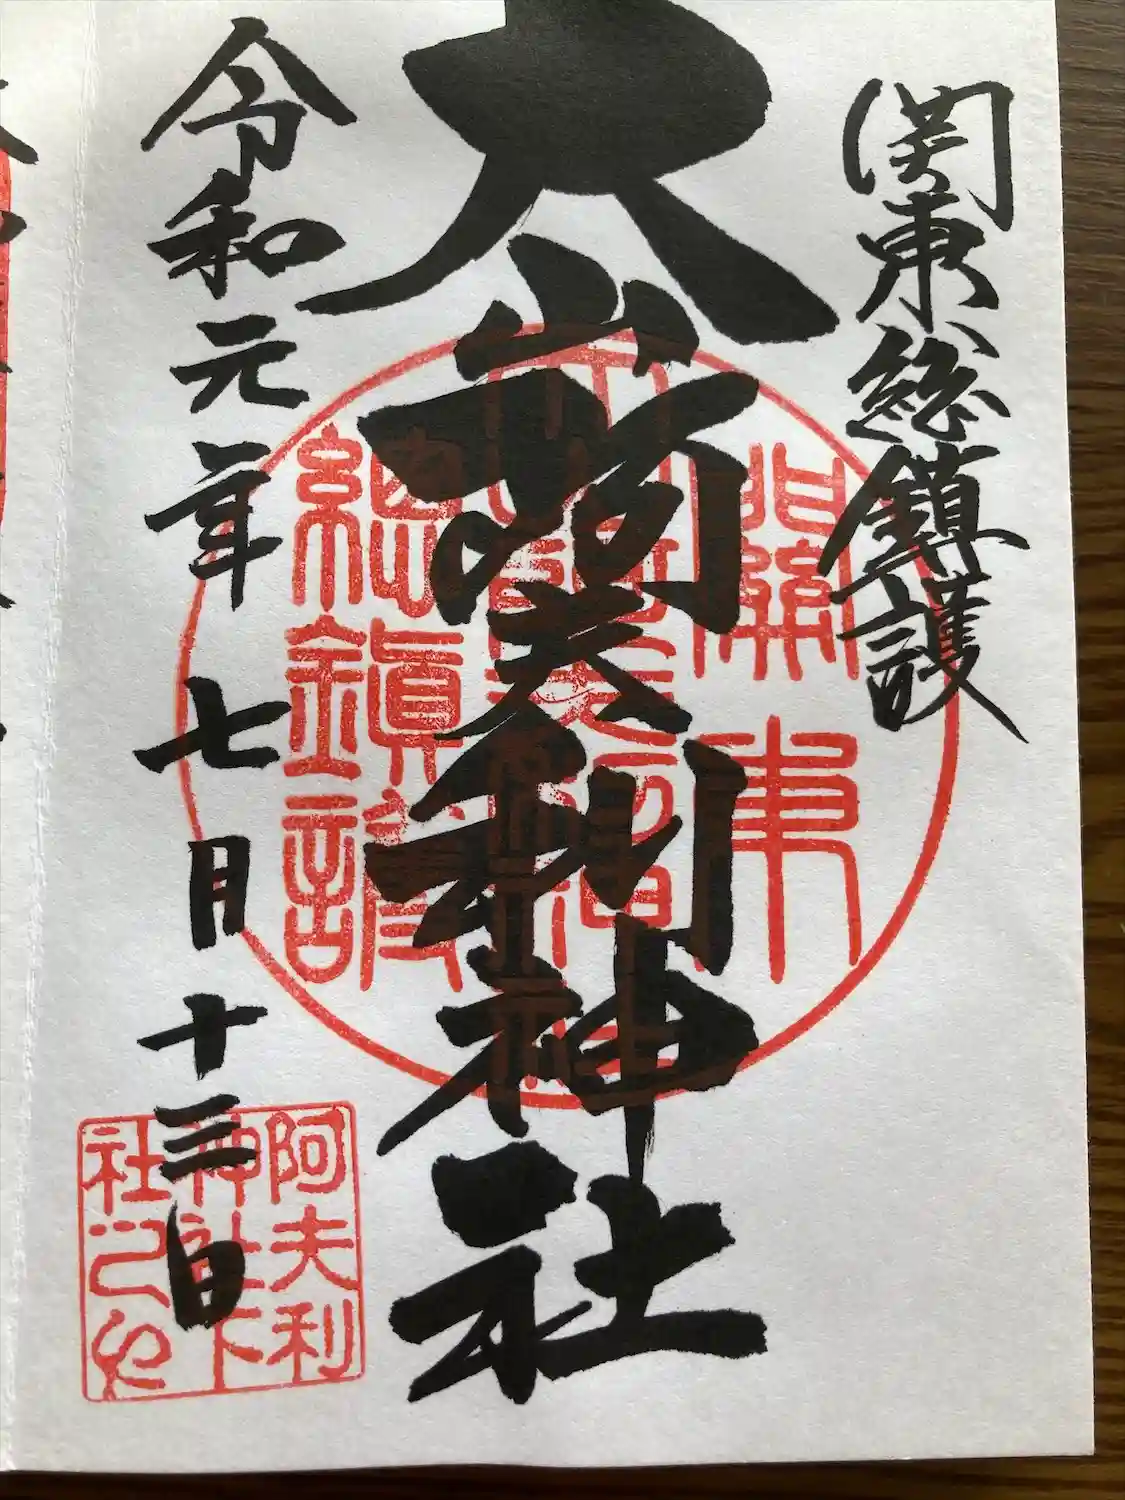 関東総鎮護
大山阿夫利神社
令和元年七月十三日
關東
總鎮護
阿夫利
神社下
社之印